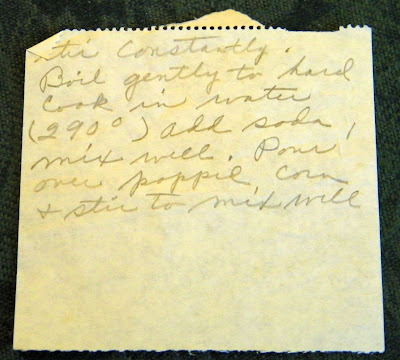 Stir Constantly.
Boil gently to hard
Cook in water
(290°) add soda,
mix well. Pour
over popped Corn
+ stir to mix well